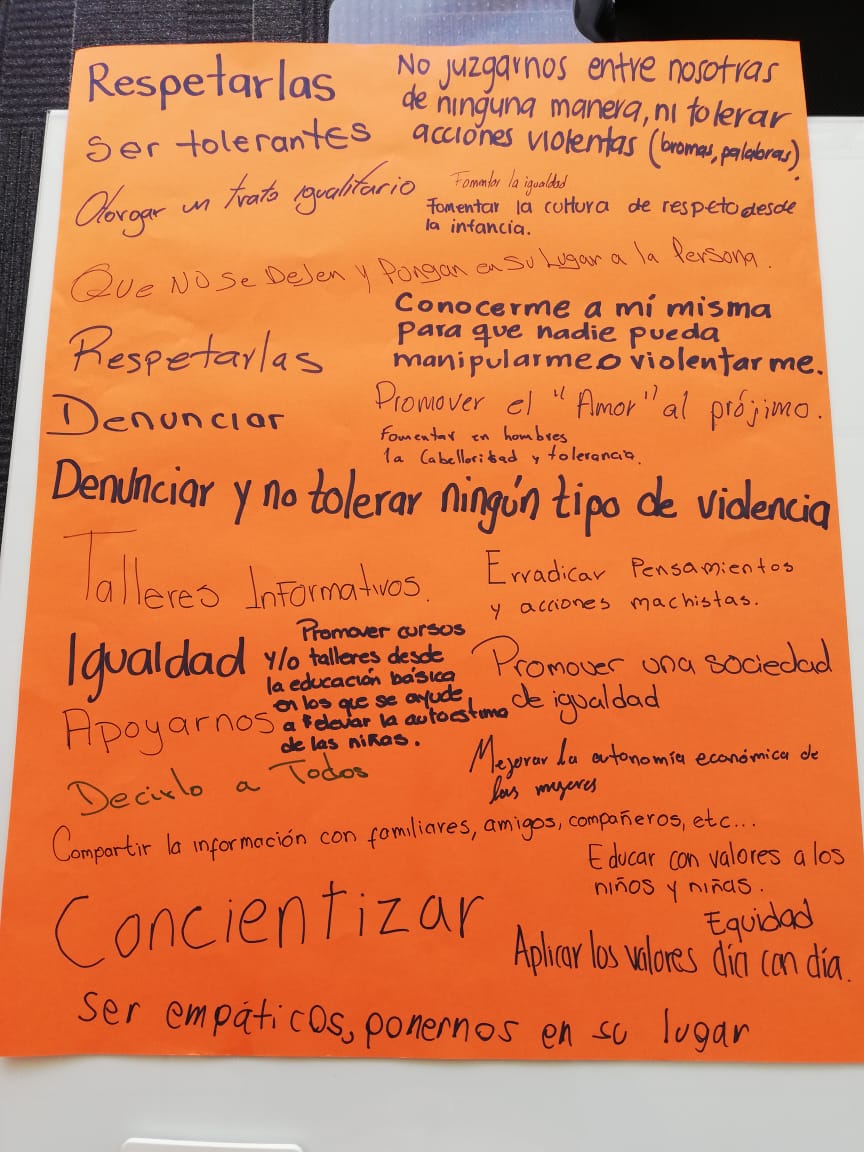 Respetarlas
No juzgarnos entre nosotras
de ninguna manera, ni tolerar
acciones violentas (bromas, palabras).
ser tolerantes
Otorgar un trato igualitario
Fomentar la igualdad
Fomentar la cultura de respeto desde
la infancia.
Que NO Se Dejen y Pongan en su Lugar a la Persona.
Conocerme a mí misma
para que nadie pueda
manipularme o violentarme.
Respetarlas
Denunciar
Promover el "Amor" al prójimo.
Fomentar en hombres
la Caballorisdad y tolerancia.
Denunciar y no tolerar ningún tipo de violencia
Talleres Informativos.
Erradicar Pensamientos
y acciones machistas.
Igualdad
Promover cursos
y/o talleres desde
la educación básica
en los que se ayude
a elevar la autoestima
de las niñas.
Promover una sociedad
de igualdad
Apoyarnos
Decirlo a Todos
Mejorar la autonomía económica de
las mujeres
Compartir la información con familiares, amigos, compañeros, etc...
Educar con valores a los
niños y niñas.
Concientizar
Equidad
Aplicar los valores día con día.
ser empáticos, ponernos en su lugar